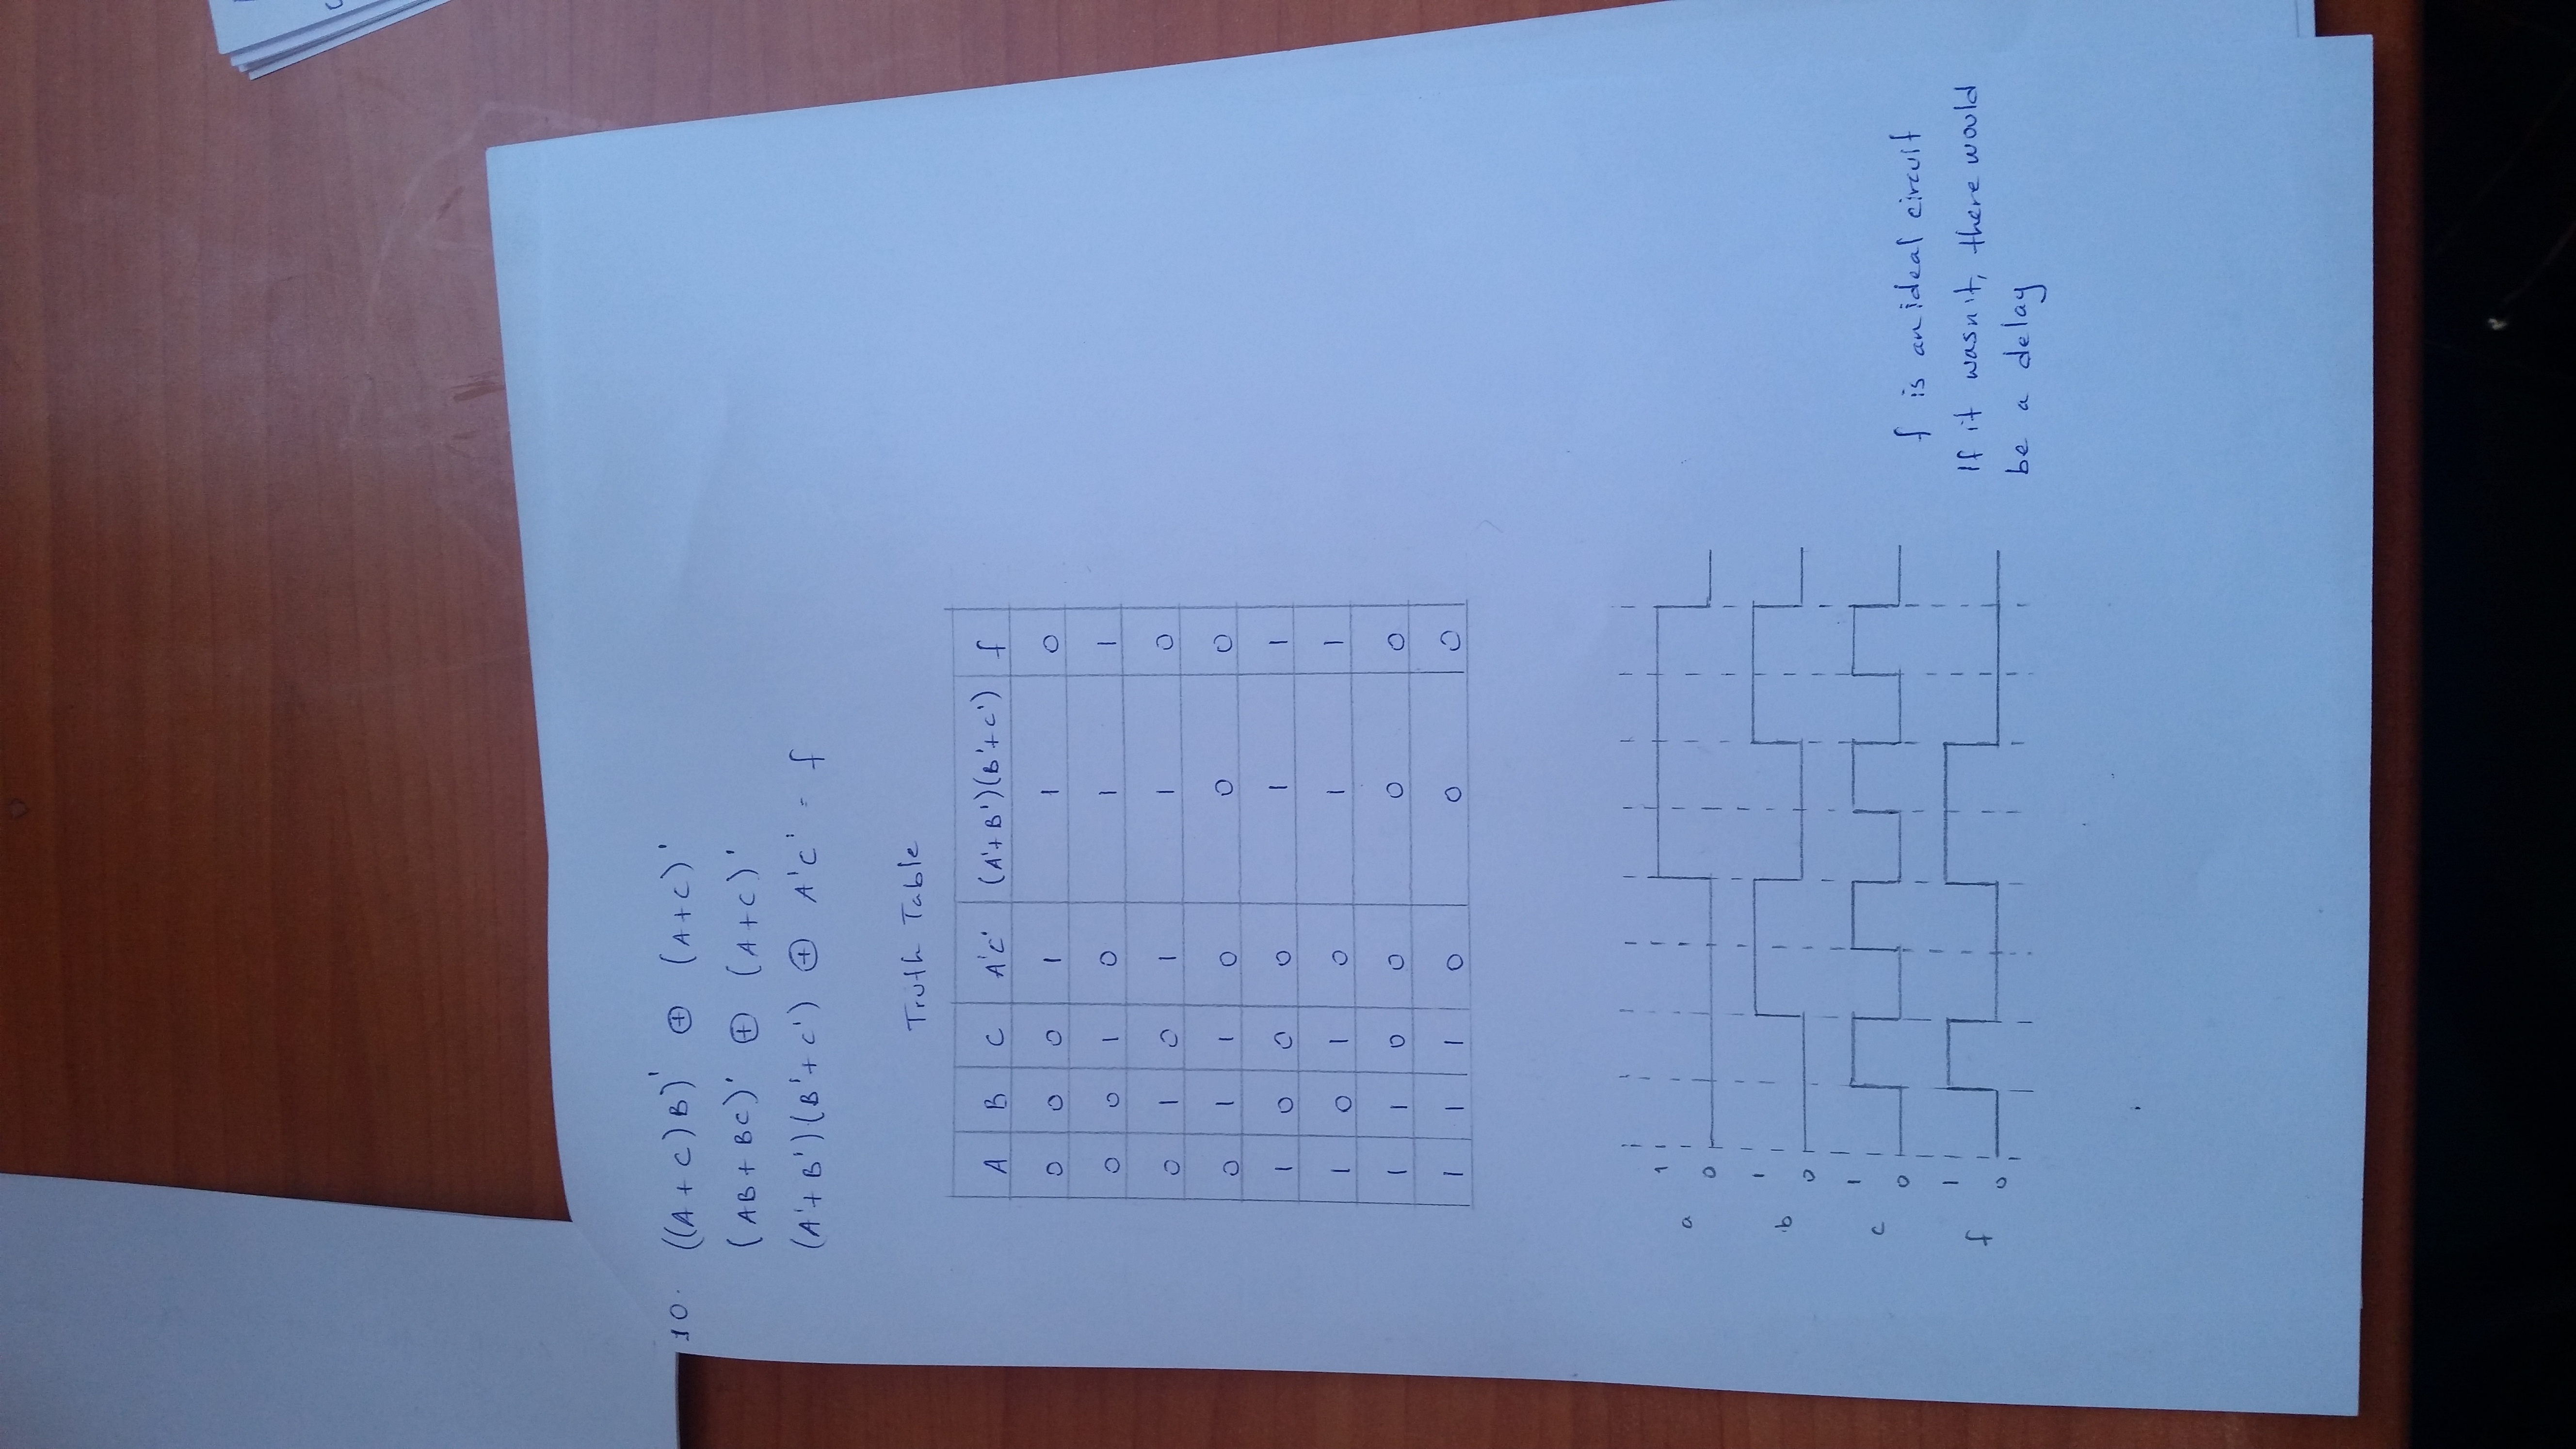 10. ((A + C)B)' ⊕ (A+C)'
(AB + BC)' ⊕ (A+C)'
(A'+B')(B'+C') ⊕ A'C' = f
Truth Table
A B C A'C' (A'+B')(B'+C') f
0 0 0 1 1 0
0 0 1 0 1 1
0 1 0 1 1 0
0 1 1 0 0 0
1 0 0 0 1 1
1 0 1 0 1 1
1 1 0 0 0 0
1 1 1 0 0 0
1
a
0
1
b
0
1
c
0
1
f
0
f is an ideal circuit
If it wasn't, there would
be a delay